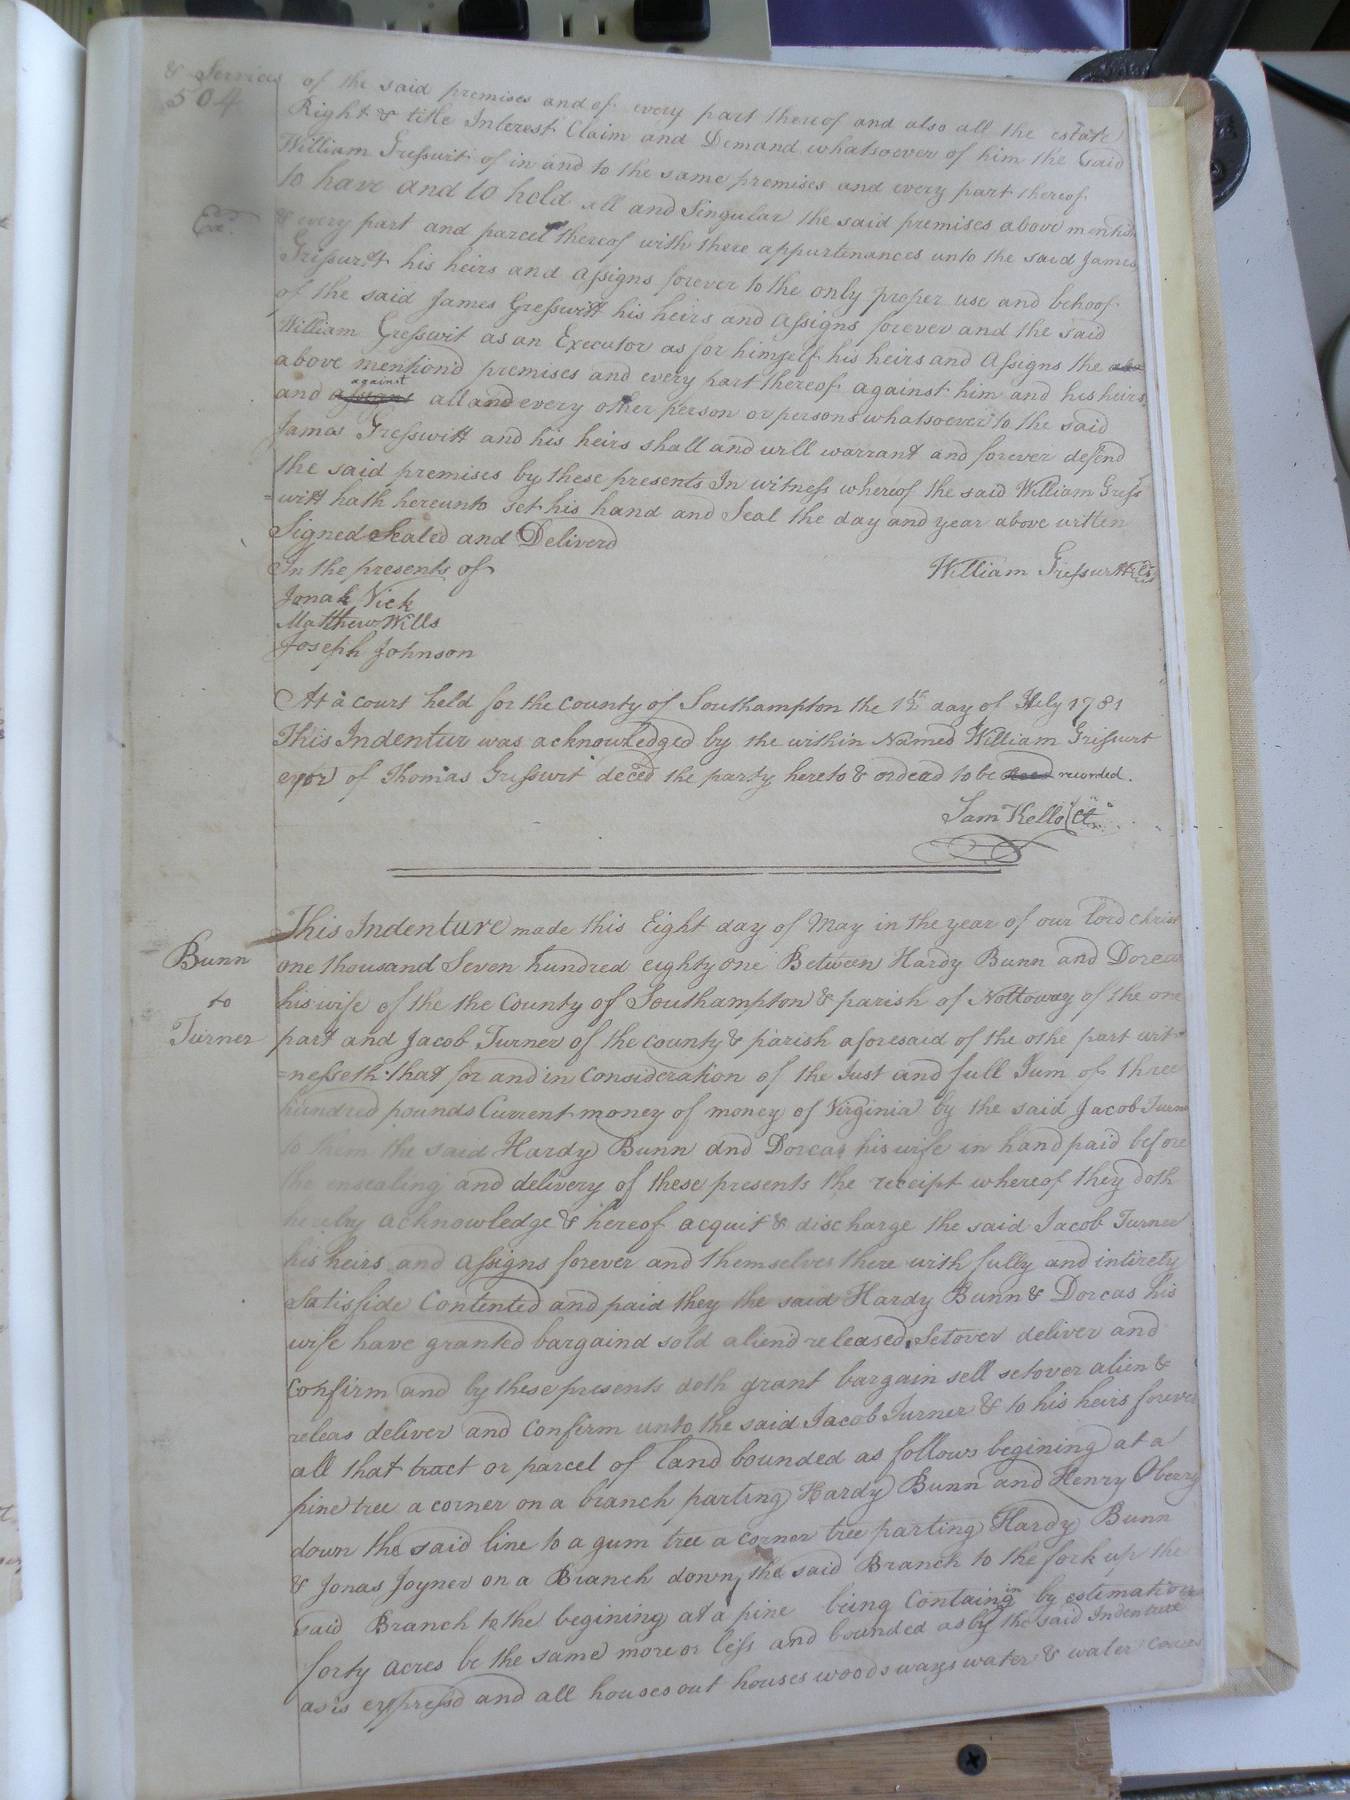 & Services of the said premises and of every part thereof and also all the estate
504 Right & title Interest Claim and Demand whatsoever of him the said
William Gresswit of in and to the same premises and every part thereof
to have and to hold all and Singular the said premises above mention
Exd. & every part and parcel thereof with there appurtenances unto the said James
Gresswitt his heirs and assigns forever to the only proper use and behoof
of the said James Gresswitt his heirs and assigns forever and the said
William Gresswit as an Executor as for himself his heirs and assigns the
above mention'd premises and every part thereof against him and his heirs
and assigns against all and every other person or persons whatsoever to the said
James Gresswitt and his heirs shall and will warrant and forever defend
the said premises by these presents In witness whereof the said William Gress
=witt hath hereunto set his hand and Seal the day and year above written
Signed Sealed and Deliverd
In the presents of William Gresswitt (Ls)
Jonah Vick
Matthew Wills
Joseph Johnson
At a court held for the County of Southampton the 12th day of July 1781
This Indentur was acknowledged by the within Named William Gresswit
exor of Thomas Gresswit deced the party hereto & ordead to be recorded.
Sam Kello Ct
This Indenture made this Eight day of May in the year of our lord christ
Bunn one thousand Seven hundred eighty one Between Hardy Bunn and Dorcas
to his wife of the the County of Southampton & parish of Nottoway of the one
Turner part and Jacob Turner of the county & parish aforesaid of the othe part wit-
=nesseth that for and in Consideration of the Just and full Sum of three
hundred pounds Current money of money of Virginia by the said Jacob Turner
to them the said Hardy Bunn and Dorcas his wife in hand paid before
the ensealing and delivery of these presents the receipt whereof they doth
hereby acknowledge & hereof acquit & discharge the said Jacob Turner
his heirs and assigns forever and themselves there with fully and intirety
Satisfide Contented and paid they the said Hardy Bunn & Dorcas his
wife have granted bargaind sold aliend released Setover deliver and
Confirm and by these presents doth grant bargain sell setover alien &
releas deliver and Confirm unto the said Jacob Turner & to his heirs forever
all that tract or parcel of land bounded as follows begining at a
pine tree a corner on a branch parting Hardy Bunn and Henry Oberry
down the said line to a gum tree a corner tree parting Hardy Bunn
& Jonas Joyner on a Branch down the said Branch to the fork up the
said Branch to the begining at a pine being Containgin by estimation
forty acres be the same more or less and bounded as by the said Indenture
as is expressd and all houses out houses woods ways water & water Coures